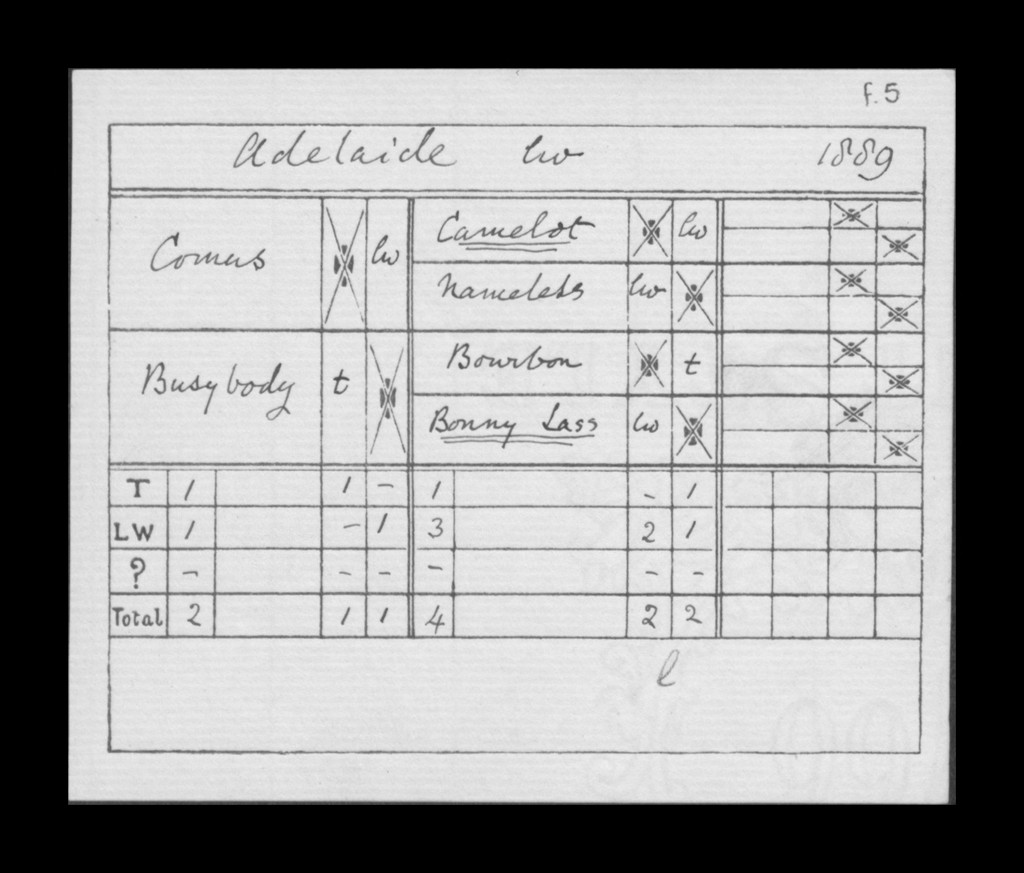 f.5
Adelaide lw 1889
Comus lw
Camelot lw
Nameless lw
Busybody t
Bourbon t
Bonny Lass lw
T 1 1 - 1 - 1
LW 1 - 1 3 2 1
? - - - - - -
Total 2 1 1 4 2 2
l